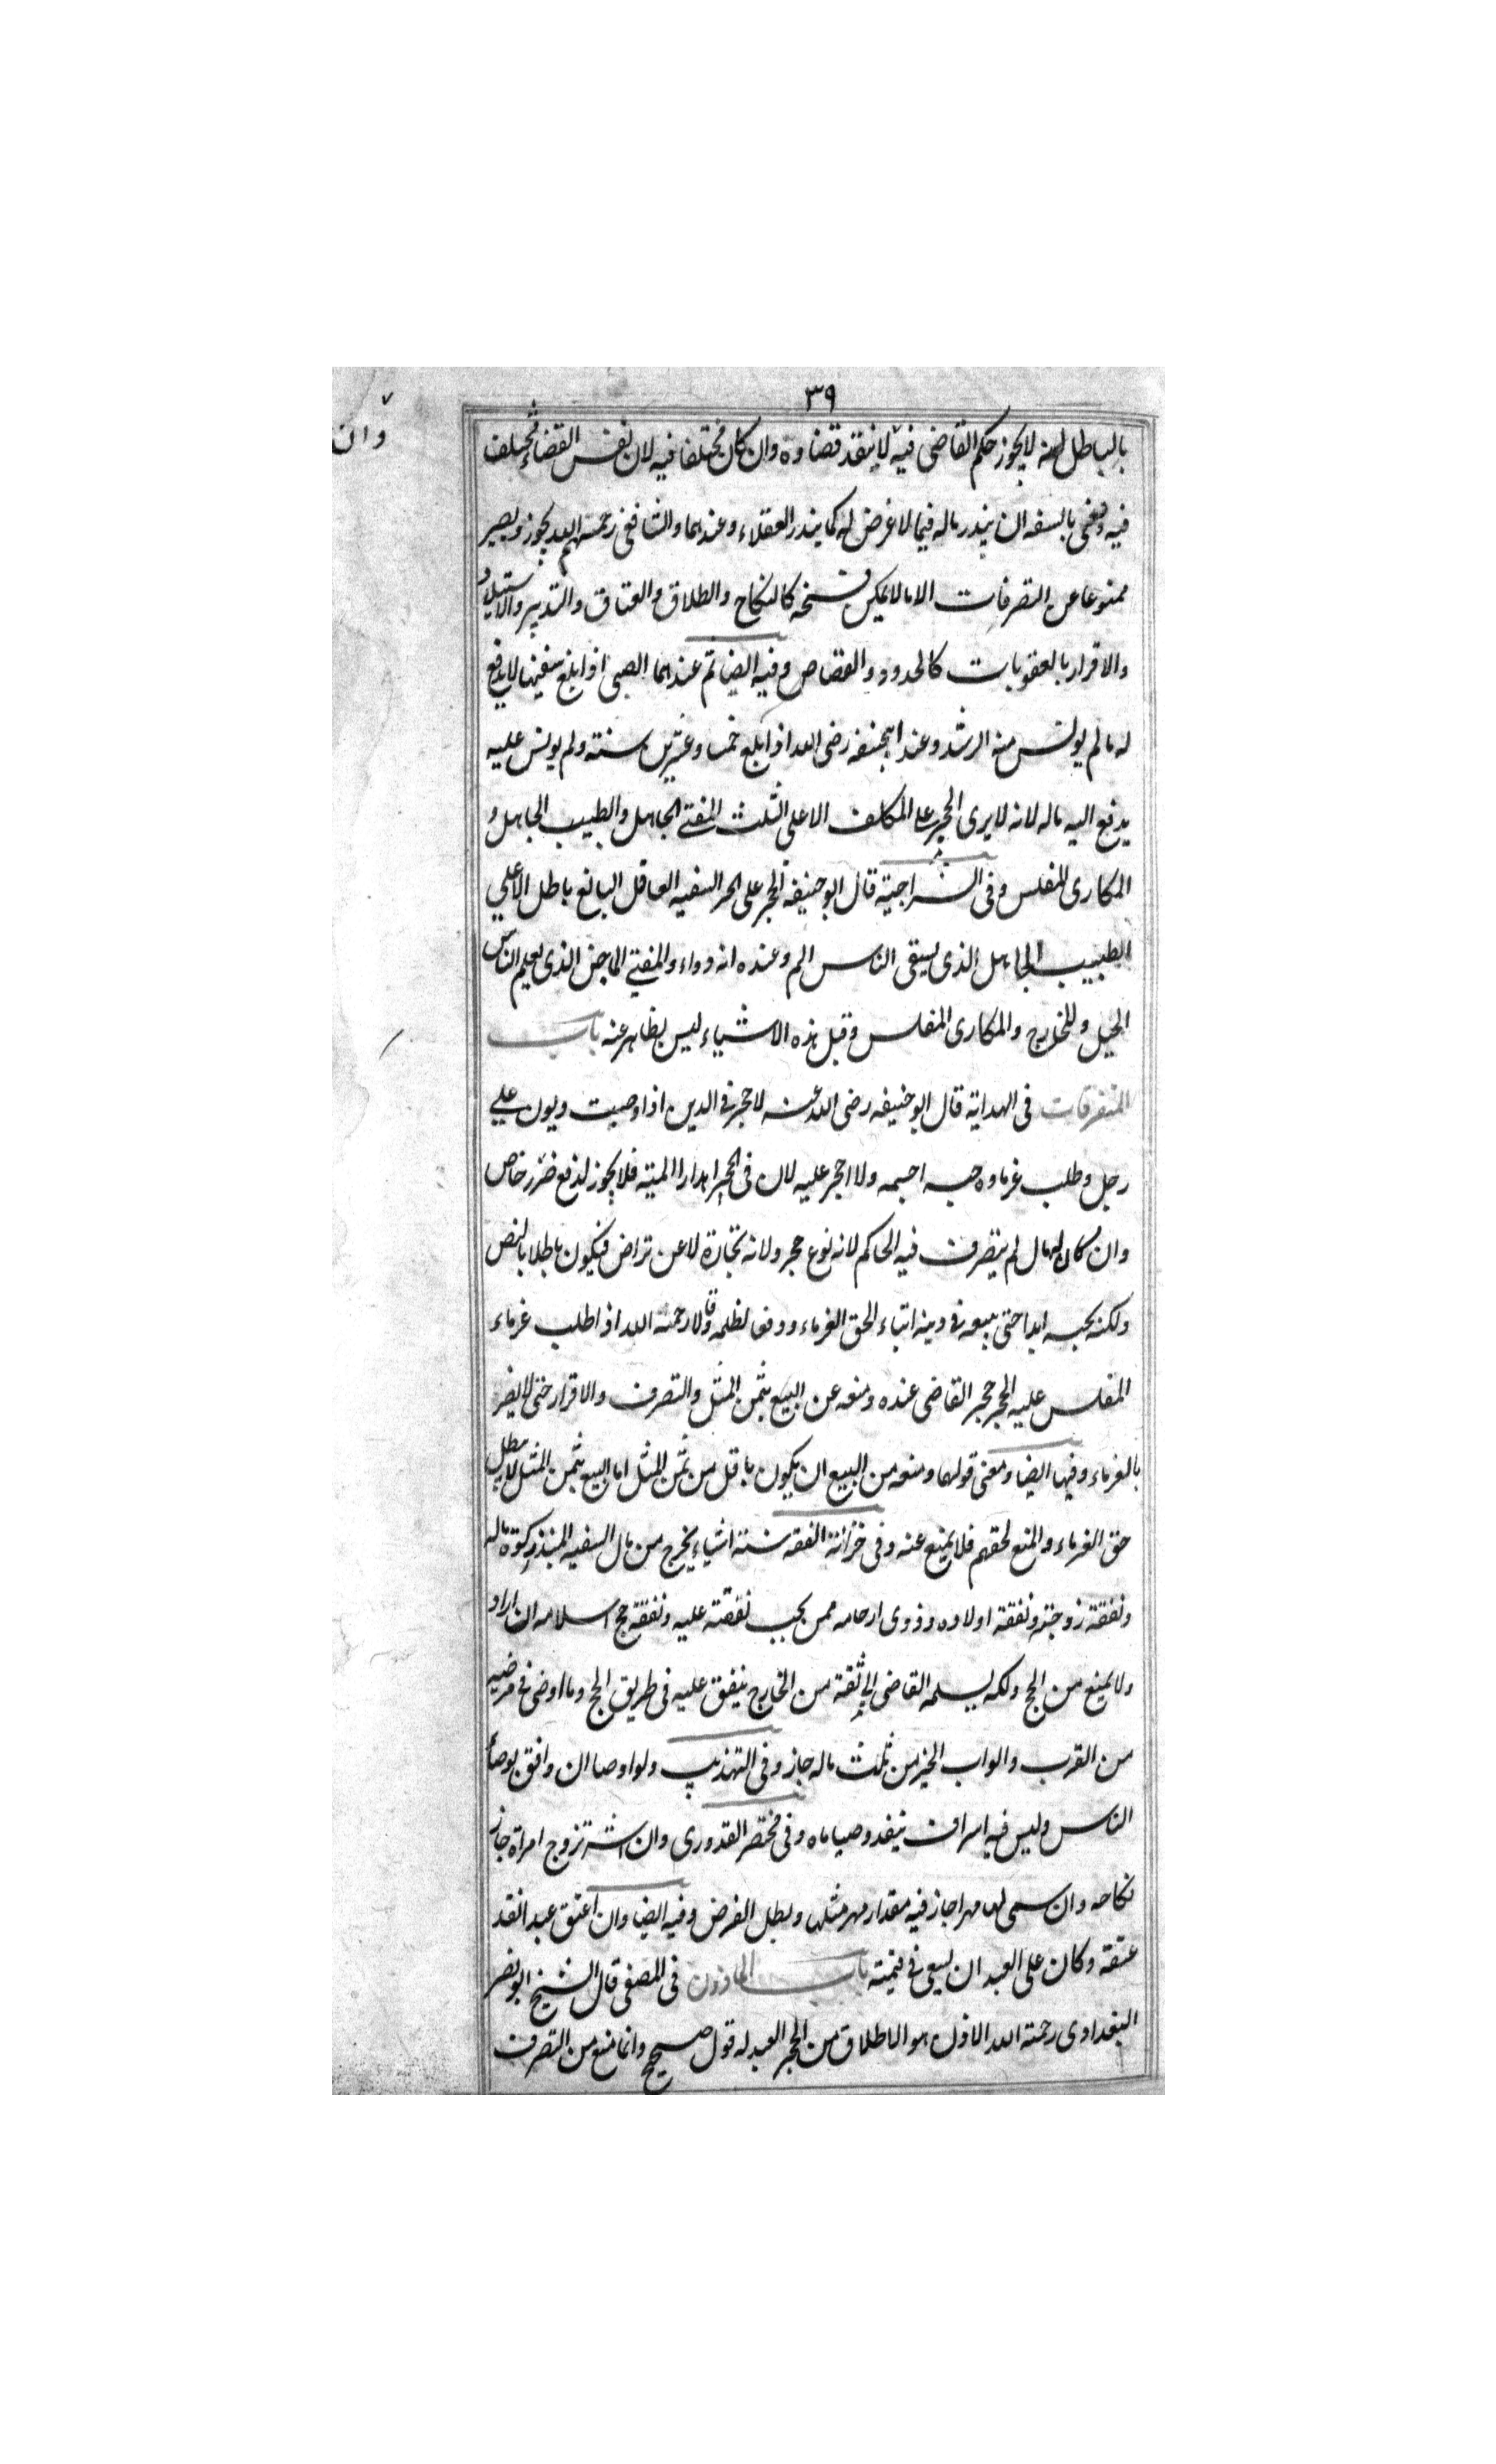 ٣٩
وان
بالباطل لانه لا يجوز حكم القاضى فيه لا ينفذ قضاوه وان كان مختلفا فيه لان نفس القضاء مختلف
فيه ونعنى بالسفه ان يبذر ماله فيما لا غرض له كما يبذر العقلاء وعندهما والشافعى رحمتهم الله يجوز ويصير
ممنوعا عن التصرفات الا ما لا يمكن فسخه كالنكاح والطلاق والعتاق والتدبير والاستيلاد
والاقرار بالعقوبات كالحدود والقصاص وفيه ايضا ثم عندهما الصبى اذا بلغ سفيها لا يدفع
له مالم يونس منه الرشد وعند ابيحنفه رضى الله اذا بلغ خمسا وعشرين سنته ولم يونس عليه
يدفع اليه ماله لانه لا يرى الحجر على المكلف الا على الثلث المفتى الجاهل والطبيب الجاهل و
المكارى المفلس وفى السراجية قال ابو حنيفة الحجر على الحر السفيه العاقل البالغ باطل الا على
الطبيب الجاهل الذى يسقى الناس السم وعنده انه دواء والمفتى الماجن الذى يعلم الناس
الحيل وللمخارج والمكارى المفلس وقيل هذه الاشياء ليس بظاهر عنه باب
المتفرقات فى الهداية قال ابو حنيفه رضى الله عنه لا حجر فى الدين اذا وجبت ديون على
رجل وطلب غرماوه حبسه احبسه ولا احجر عليه لان فى الحجر اهدارا المية فلا يجوز لدفع ضرر خاص
وان كان له مال لم يتصرف فيه الحاكم لانه نوع حجر ولانه تجارة لا عن تراض فيكون باطلا بالنص
ولكنه يحبسه ابدا حتى يبيعه فى دينه ايتاء لحق الغرماء ودفعا لظلمه وقالا رحمة الله اذا طلب غرماء
المفلس عليه الحجر حجر القاضى عنده ومنعه عن البيع بثمن المثل والتصرف والاقرار حتى لا يضر
بالغرماء وفيها ايضا ومعنى قولهما ومنعه من البيع ان يكون باقل من ثمن المثل اما البيع بثمن المثل لا يبطل
حق الغرماء والمنع لحقهم فلا يمنع عنه وفى خزانة الفقه ستة اشياء يخرج من مال السفيه المبذر زكوة ماله
ونفقة زوجته ونفقة اولاده وذوى ارحامه ممن يجب نفقته عليه ونفقة حج اسلامه ان اراد
ولا يمنع من الحج ولكنه يسلمه القاضى الى ثقة من الخارج ينفق عليه فى طريق الحج وما اوصى فى مرضه
من القرب وابواب الخير من ثلث ماله جاز وفى التهذيب ولو اوصا ان وافق بوصايا
الناس وليس فيه اسراف ينفد وصياماه وفى مختصر القدورى وان تزوج امراة جاز
نكاحه وان سمى لها مهرا جاز فيه مقدار مهر مثلها وبطل الفرض وفيه ايضا وان اعتق عبدا نفذ
عتقه وكان على العبد ان يسعى فى قيمته باب الماذون فى المصفى قال الشيخ ابو نصر
البغدادى رحمته الله الاذن هو الاطلاق من الحجر العبد له قول صحيح وانما منع من التصرف